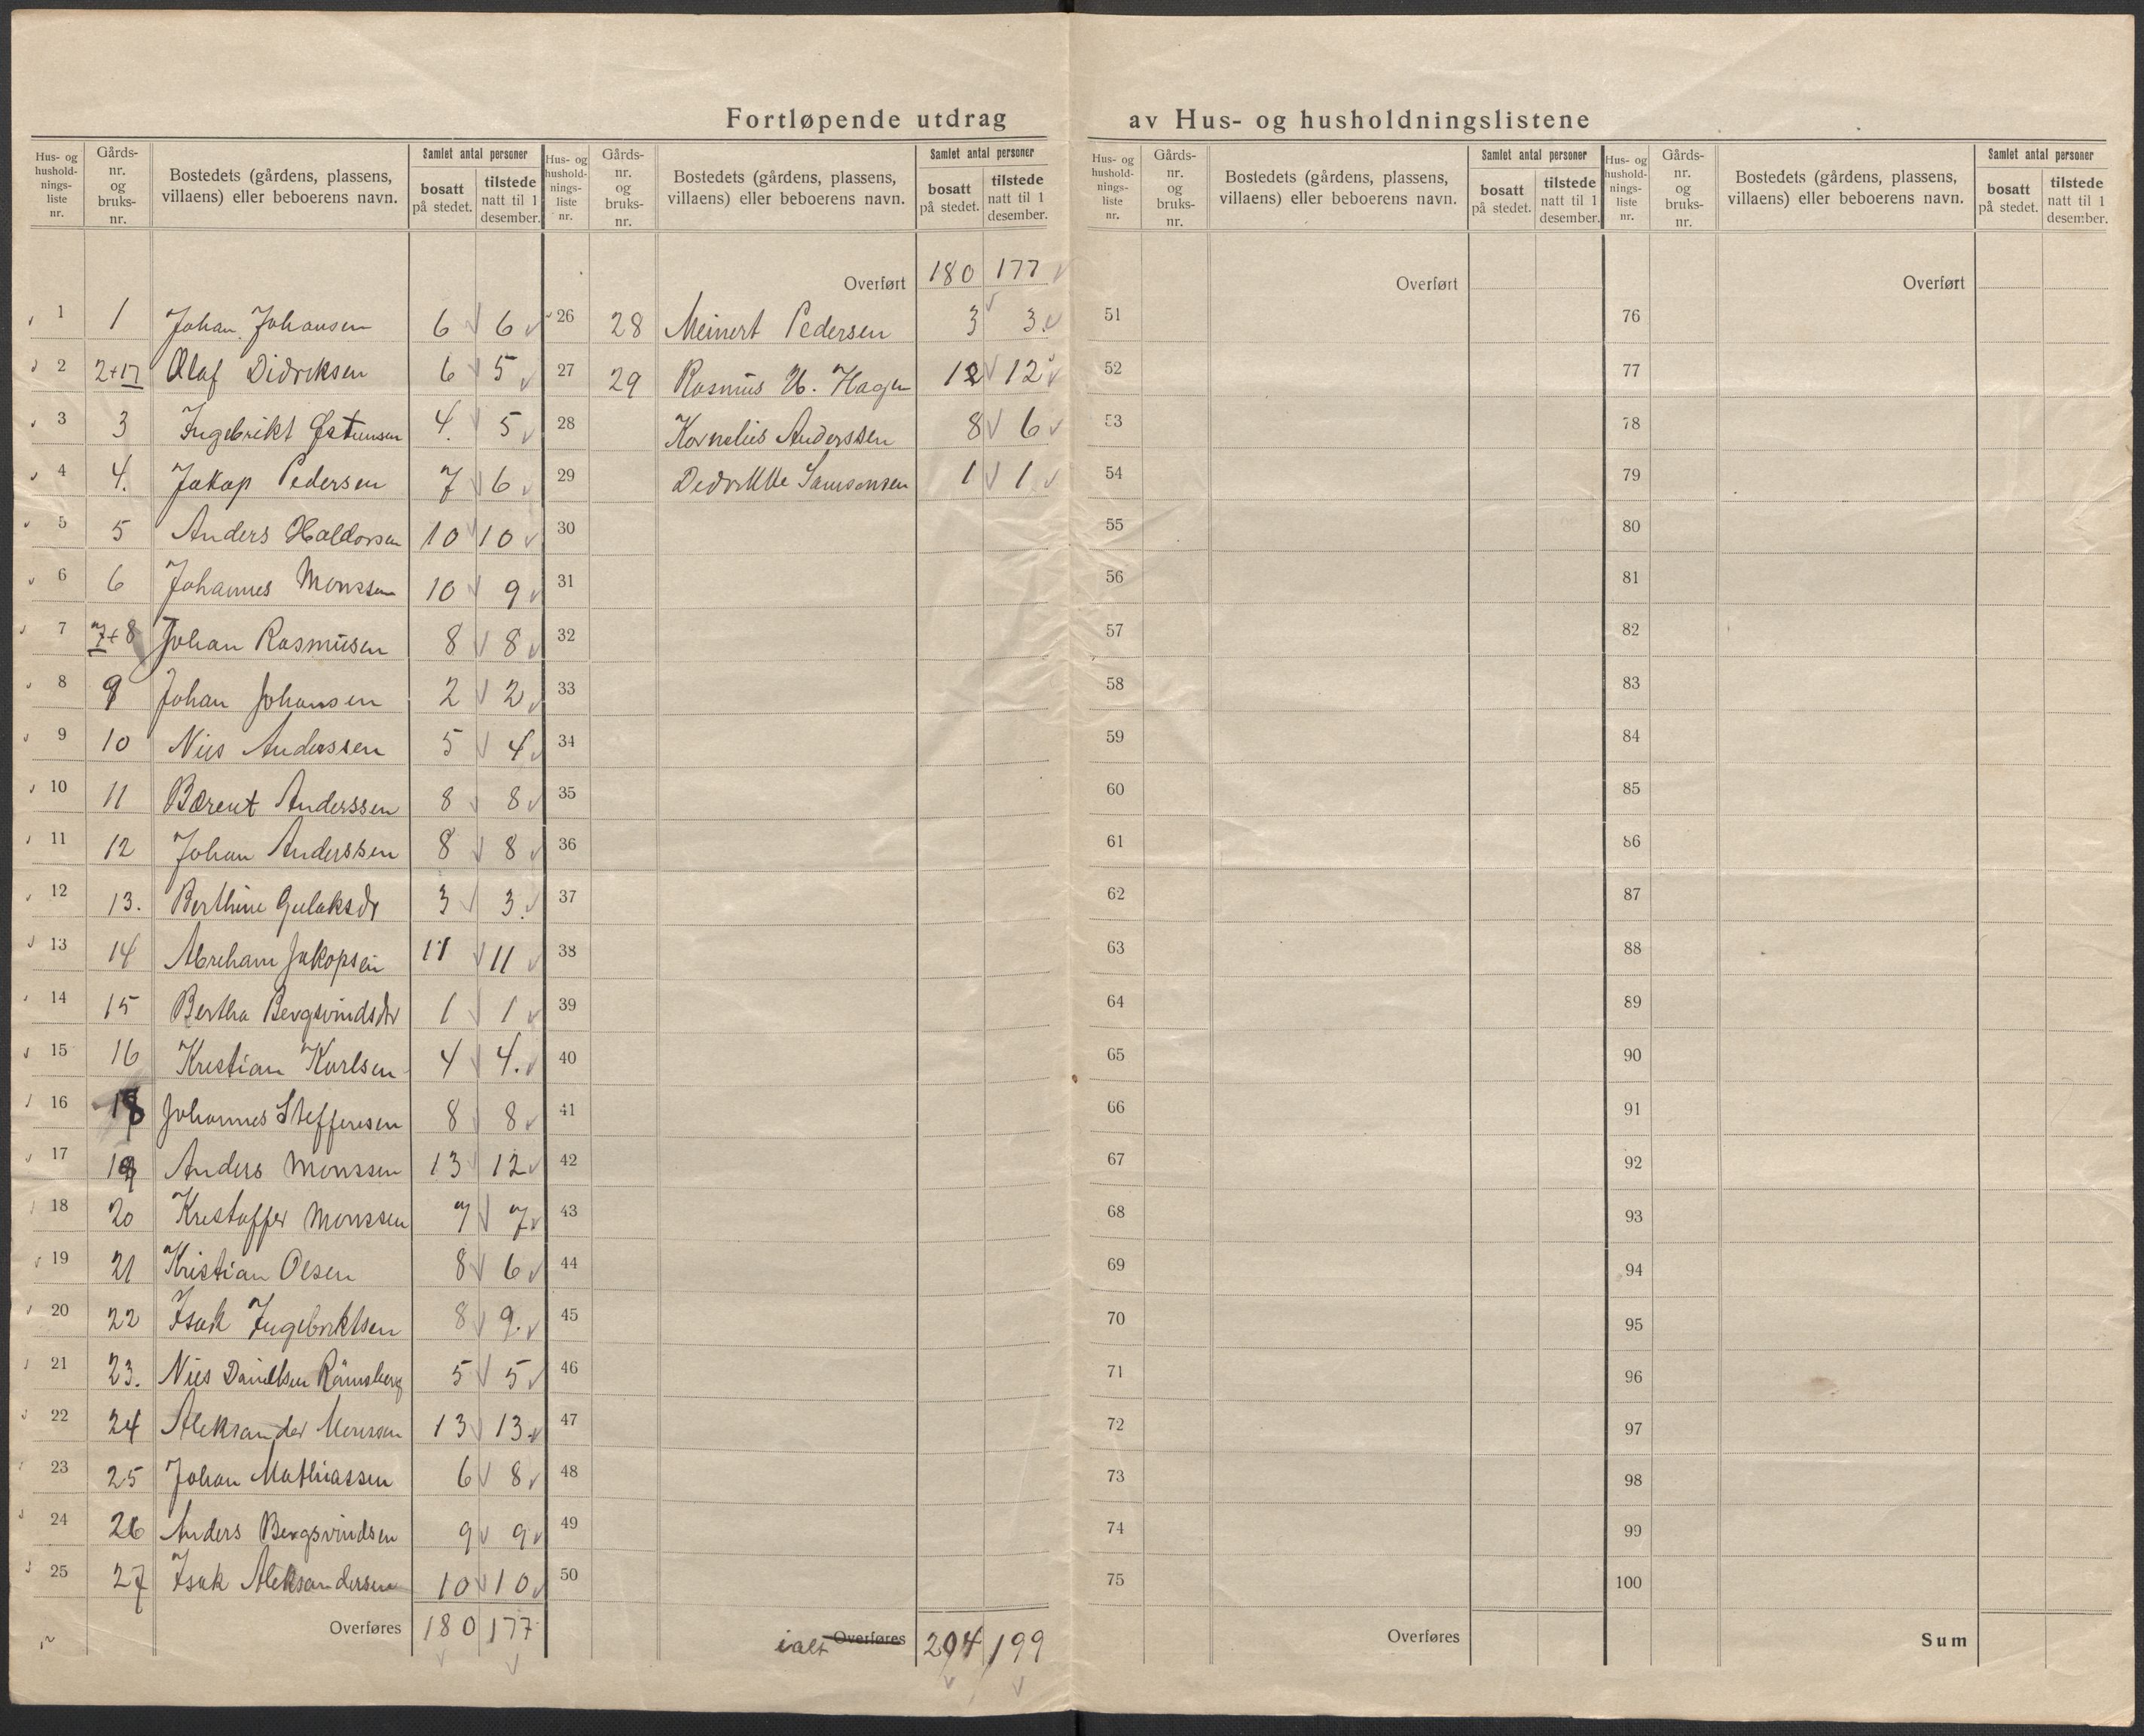 Fortløpende utdrag av Hus- og husholdningslistene
Hus- og hushold-nings-liste nr. Gårds-nr. og bruks-nr. Bostedets (gårdens, plassens, villaens) eller beboerens navn. Samlet antal personer bosatt på stedet. tilstede natt til 1 desember.
1 1 Johan Johansen 6 6
2 2+17 Olaf Didriksen 6 5
3 3 Ingebrikt 4. 5
4 4. Jakop Pedersen 7 6
5 5 Anders Haldorsen 10 10
6 6 Johannes Monssen 10 9
7 7+8 Johan Rasmusen 8 8
8 9 Johan Johansen 2 2
9 10 Nils Anderssen 5 4
10 11 Bærent Anderssen 8 8
11 12 Johan Anderssen 8 8
12 13. Berthine Gulaksdr 3 3.
13 14 Abreham Jakopsen 11 11
14 15 Bertha Bergsvindsdtr 1 1
15 16 Kristian Karlsen 4 4.
16 18 Johannes Steffensen 8 8
17 19 Anders Monssen 13 12
18 20 Kristoffer Monssen 7 7
19 21 Kristian Olsen 8 6
20 22 Isak Ingebriktsen 8 9.
21 23. Nils Daniellsen 5 5
22 24 Aleksander Monssen 13 13
23 25 Johan Mathiassen 6 8
24 26 Anders Bergsvindsen 9 9
25 27 Isak Aleksandersen 10 10
Overføres 180 177
Hus- og hushold-nings-liste nr. Gårds-nr. og bruks-nr. Bostedets (gårdens, plassens, villaens) eller beboerens navn. Samlet antal personer bosatt på stedet. tilstede natt til 1 desember.
Overført 180 177
26 28 Meinert Pedersen 3 3.
27 29 Rasmus H. Hagen 12 12
28 Kornelius Anderssen 8 6
29 Didrikke Samsonsen 1 1
30
31
32
33
34
35
36
37
38
39
40
41
42
43
44
45
46
47
48
49
50
ialt Overføres 204 199
Hus- og hushold-nings-liste nr. Gårds-nr. og bruks-nr. Bostedets (gårdens, plassens, villaens) eller beboerens navn. Samlet antal personer bosatt på stedet. tilstede natt til 1 desember.
Overført
51
52
53
54
55
56
57
58
59
60
61
62
63
64
65
66
67
68
69
70
71
72
73
74
75
Overføres
Hus- og hushold-nings-liste nr. Gårds-nr. og bruks-nr. Bostedets (gårdens, plassens, villaens) eller beboerens navn. Samlet antal personer bosatt på stedet. tilstede natt til 1 desember.
Overført
76
77
78
79
80
81
82
83
84
85
86
87
88
89
90
91
92
93
94
95
96
97
98
99
100
Sum